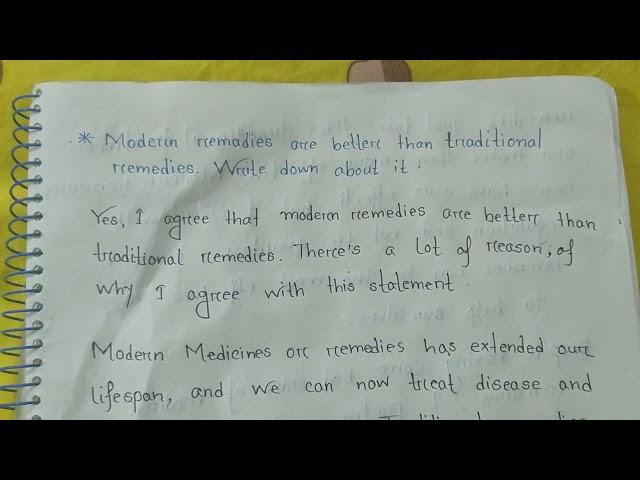 * Modern remadies are better than traditional
remedies. Write down about it.
Yes, I agree that modern remedies are better than
traditional remedies. There's a lot of reason, of
why I agree with this statement.
Modern Medicines or remedies has extended our
lifespan, and we can now treat disease and